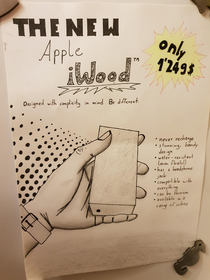 THE NEW
Apple
iWood™
only
1'249$
Designed with simplicity in mind. Be different.
• never recharge
• stunning, handy
design
• water-resistant
• has a headphone
jack
• compatible with
everything
• can be thrown
• available in a
range of colors